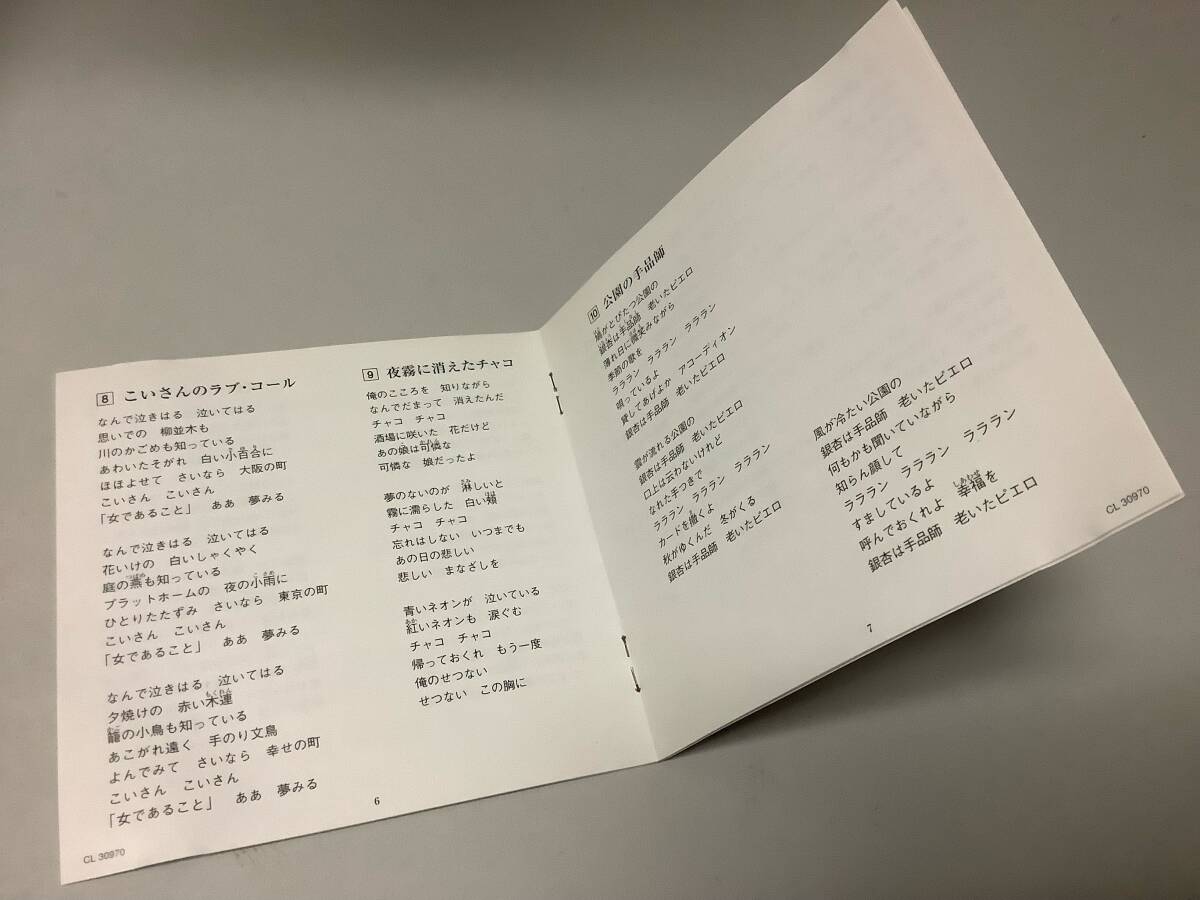 8 こいさんのラブ・コール
なんで泣きはる 泣いてはる
思いでの 柳並木も
川のかごめも知っている
あわいたそがれ 白い小百合に
ほほよせて さいなら 大阪の町
こいさん こいさん
「女であること」 ああ 夢みる
なんで泣きはる 泣いてはる
花いけの 白いしゃくやく
庭の燕も知っている
プラットホームの 夜の小雨に
ひとりたたずみ さいなら 東京の町
こいさん こいさん
「女であること」 ああ 夢みる
なんで泣きはる 泣いてはる
夕焼けの 赤い木連
籠の小鳥も知っている
あこがれ遠く 手のり文鳥
よんでみて さいなら 幸せの町
こいさん こいさん
「女であること」 ああ 夢みる
CL 30970
9 夜霧に消えたチャコ
俺のこころを 知りながら
なんでだまって 消えたんだ
チャコ チャコ
酒場に咲いた 花だけど
あの娘は可憐な
可憐な 娘だったよ
夢のないのが 淋しいと
霧に濡らした 白い頬
チャコ チャコ
忘れはしない いつまでも
あの日の悲しい
悲しい まなざしを
青いネオンが 泣いている
紅いネオンも 涙ぐむ
チャコ チャコ
帰っておくれ もう一度
俺のせつない
せつない この胸に
6
10 公園の手品師
鳩がとびたつ公園の
銀杏は手品師 老いたピエロ
薄れ日に微笑みながら
季節の歌を
ラララン ラララン ラララン
唄っているよ
貸してあげよか アコーディオン
銀杏は手品師 老いたピエロ
雲が流れる公園の
銀杏は手品師 老いたピエロ
口上は云わないけれど
なれた手つきで
ラララン ラララン ラララン
カードを撒くよ
秋がゆくんだ 冬がくる
銀杏は手品師 老いたピエロ
風が冷たい公園の
銀杏は手品師 老いたピエロ
何もかも聞いていながら
知らん顔して
ラララン ラララン ラララン
すましているよ
呼んでおくれよ 幸福を
銀杏は手品師 老いたピエロ
7
CL 30970